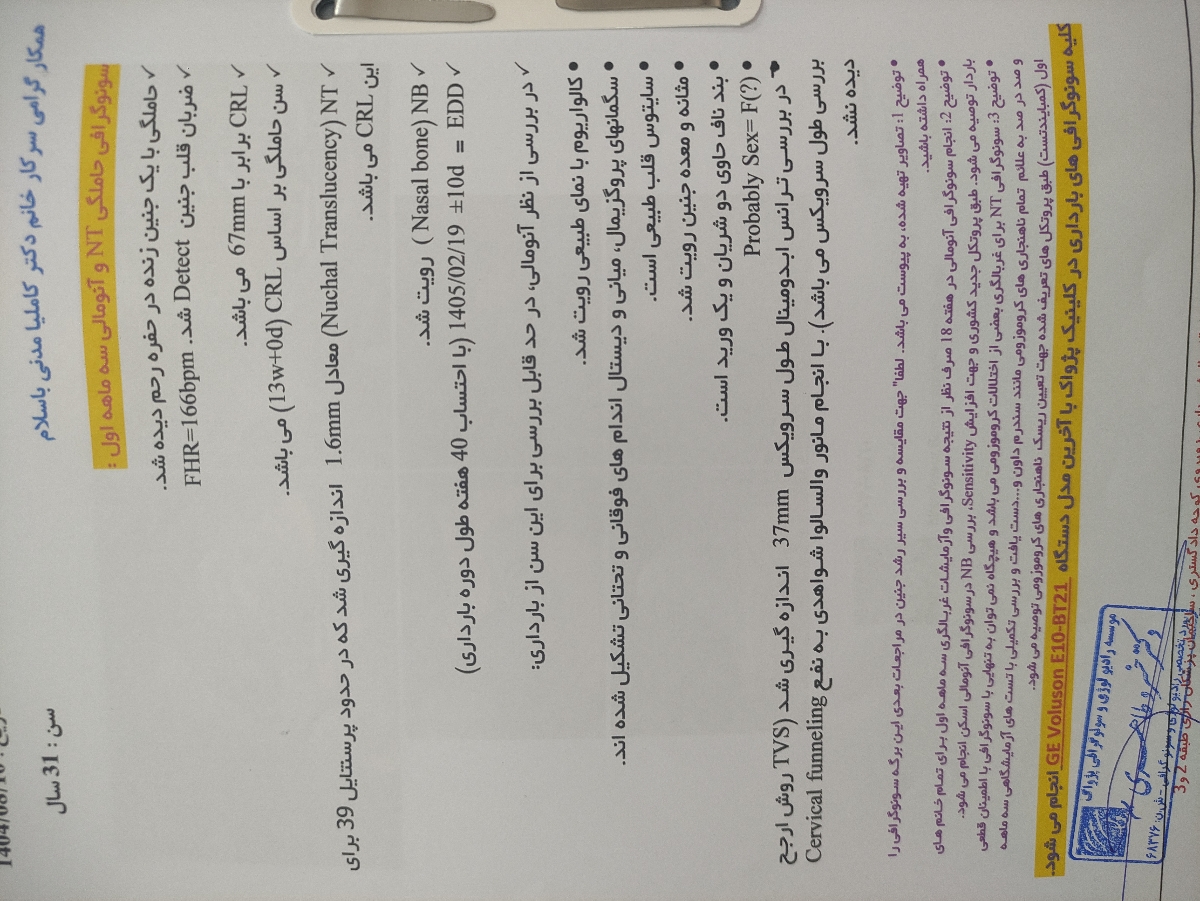 سن : 31 سال
همکار گرامی سرکار خانم دکتر کاملیا مدنی باسلام
سونوگرافی حاملگی NT و آنومالی سه ماهه اول :
✓ حاملگی با یک جنین زنده در حفره رحم دیده شد.
✓ ضربان قلب جنین Detect شد. FHR=166bpm
✓ CRL برابر با 67mm می باشد.
✓ سن حاملگی بر اساس CRL (13w+0d) می باشد.
✓ NT (Nuchal Translucency) معادل 1.6mm اندازه گیری شد که در حدود پرستایل 39 برای
این CRL می باشد.
✓ NB (Nasal bone) رویت شد.
✓ EDD = 1405/02/19 ±10d (با احتساب 40 هفته طول دوره بارداری)
✓ در بررسی از نظر آنومالی، در حد قابل بررسی برای این سن از بارداری:
• کالواریوم با نمای طبیعی رویت شد.
• سگمانهای پروگزیمال، میانی و دیستال اندام های فوقانی و تحتانی تشکیل شده اند.
• سایتوس قلب طبیعی است.
• مثانه و معده جنین رویت شد.
• بند ناف حاوی دو شریان و یک ورید است.
• Probably Sex= F(?)
در بررسی ترانس ابدومینال طول سرویکس 37mm اندازه گیری شد (TVS روش ارجح
بررسی طول سرویکس می باشد). با انجام مانور والسالوا شواهدی به نفع Cervical funneling
دیده نشد.
• توضیح 1: تصاویر تهیه شده، به پیوست می باشد. لطفا" جهت مقایسه و بررسی سیر رشد جنین در مراجعات بعدی این برگه سونوگرافی را
همراه داشته باشید.
• توضیح 2: انجام سونوگرافی آنومالی در هفته 18 صرف نظر از نتیجه سونوگرافی وآزمایشات غربالگری سه ماهه اول برای تمام خانم های
باردار توصیه می شود. طبق پروتکل جدید کشوری و جهت افزایش Sensitivity، بررسی NB در سونوگرافی آنومالی اسکن انجام می شود.
• توضیح 3: سونوگرافی NT برای غربالگری بعضی از اختلالات کروموزومی می باشد و هیچگاه نمی توان به تنهایی با سونوگرافی با اطمینان قطعی
و صد در صد به علائم تمام ناهنجاری های کروموزومی مانند سندرم داون و...دست یافت و بررسی تکمیلی با تست های آزمایشگاهی سه ماهه
اول (کمبایندتست) طبق پروتکل های تعریف شده جهت تعیین ریسک ناهنجاری های کروموزومی توصیه می شود.
کلیه سونوگرافی های بارداری در کلینیک پژواک با آخرین مدل دستگاه GE Voluson E10-BT21 انجام می شود.
موسسه رادیولوژی و سونوگرافی پژواک